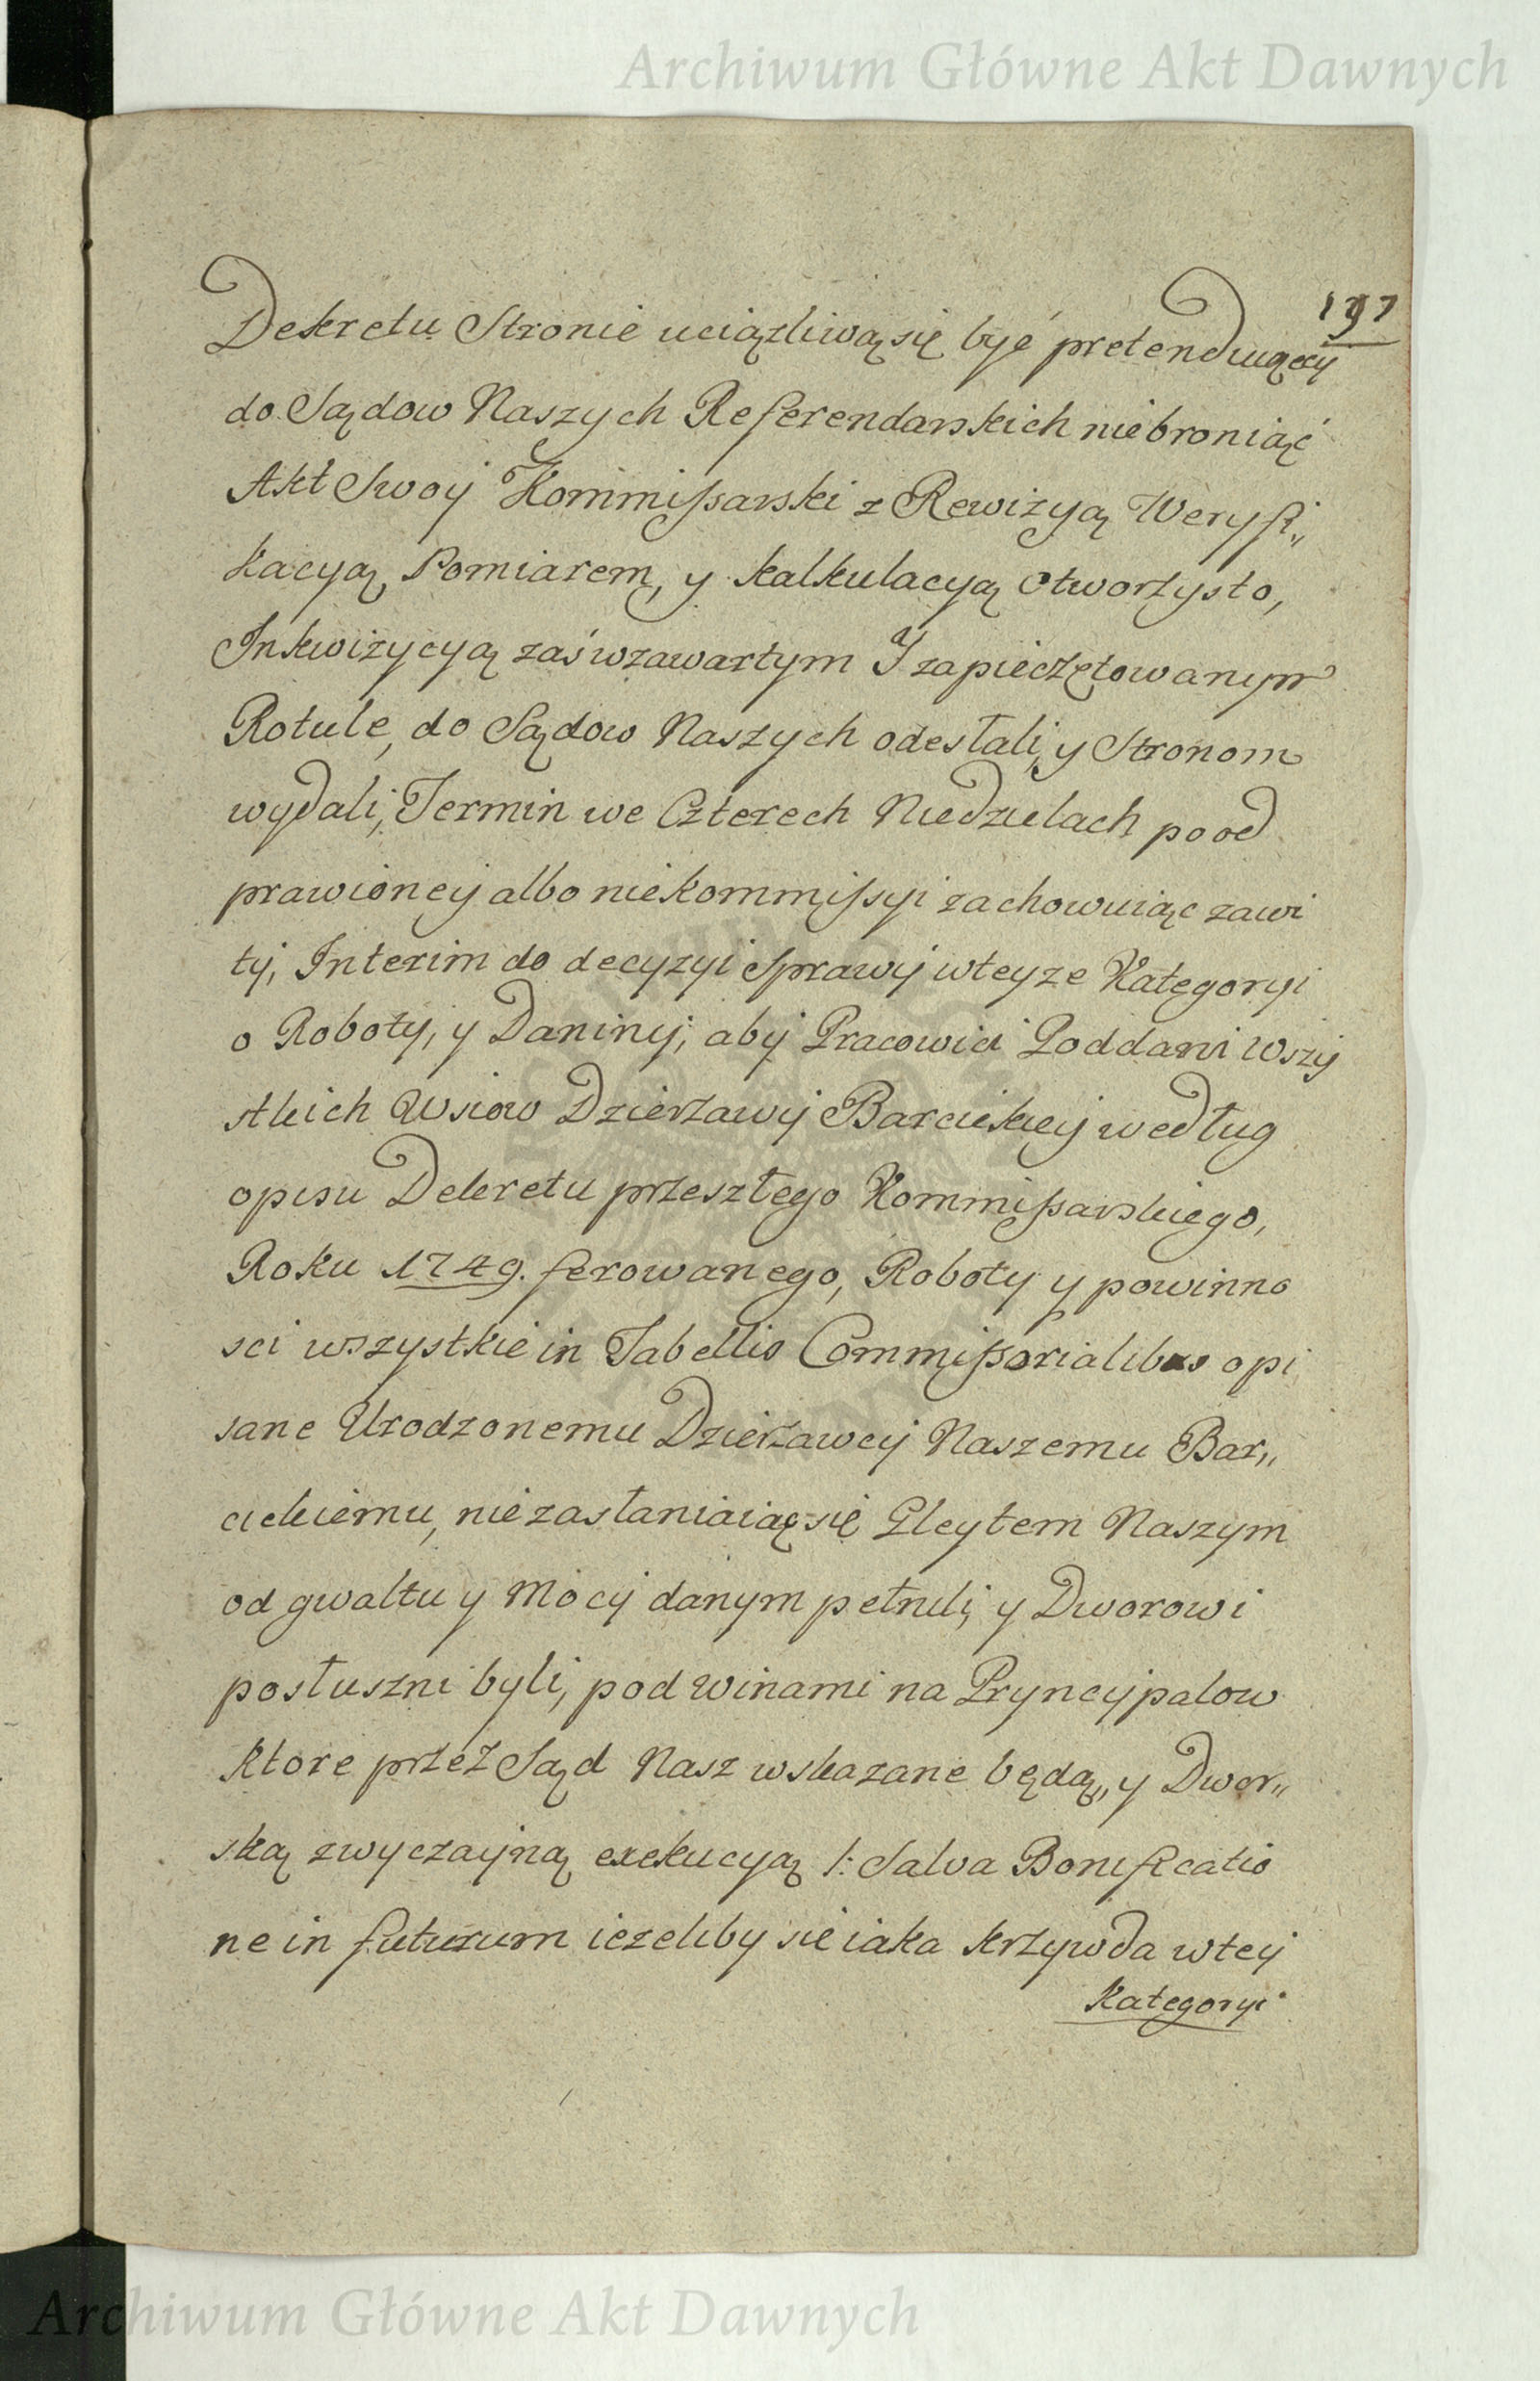 Archiwum Główne Akt Dawnych
197
Dekretu Stronie uciązliwą się być pretenduiący
do Sądow Naszych Referendarskich niebroniąć
Akt Swoy Kommissarski z Rewizyą Weryfi„
kacyą, Pomiarem, y kalkulacyą otworzysto,
Inkwizycyą zaś wzawartym I zapieczętowanym
Rotule, do Sądow Naszych odesłali, y Stronom
wydali, Termin we Czterech Niedzielach po od
prawioney albo niekommissyi zachowuiąc zawi
ty, Interim do decyzyi Sprawy wteyze Kategoryi
o Roboty, y Daniny, aby Pracowici Poddani wszy
stkich Wsiow Dzierzawy Barcickiey według
opisu Dekretu przeszłego Kommissarskiego,
Roku 1749. ferowanego, Roboty y powinno
sci wszystkie in Tabellis Commissorialibus opi
sane Urodzonemu Dzierzawcy Naszemu Bar„
cickiemu, niezasłaniaiąc się Gleytem Naszym
od gwałtu y Mocy danym pełnili, y Dworowi
posłuszni byli, pod winami na Pryncypalow
ktore przez Sąd Nasz wskazane będą, y Dwor„
ską zwyczayną exekucyą /: Salva Bonificatio
ne in futurum iezeliby się iaka krzywda wtey
Kategoryi
Archiwum Główne Akt Dawnych